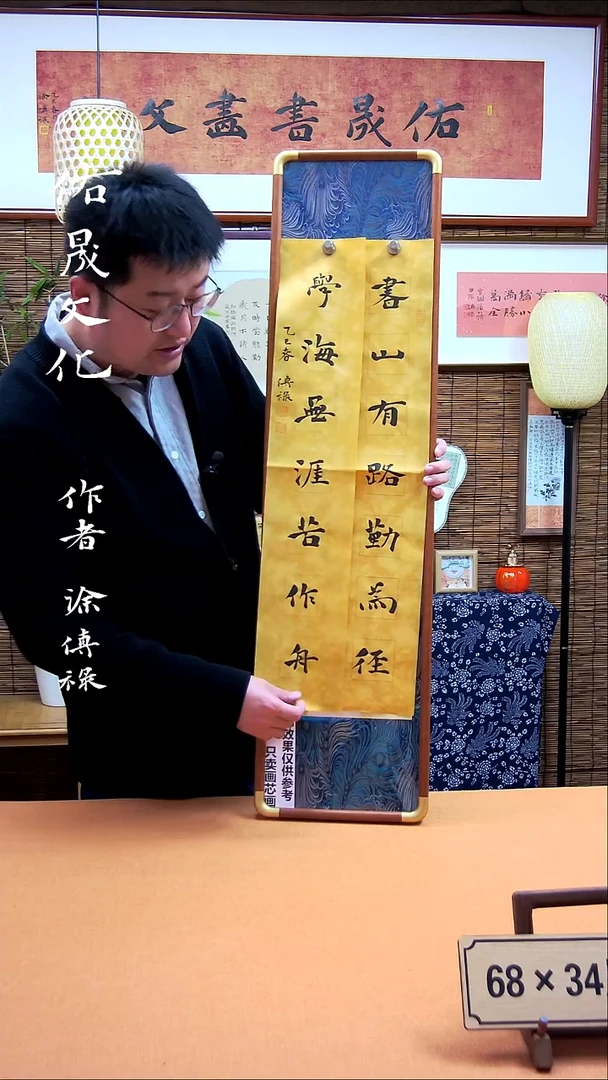 佑晟書畫文
佑晟文化
作者 涂傳祿
書山有路勤為径
學海無涯苦作舟
乙巳春 傳祿
效果仅供参考
只卖画芯画
68×34